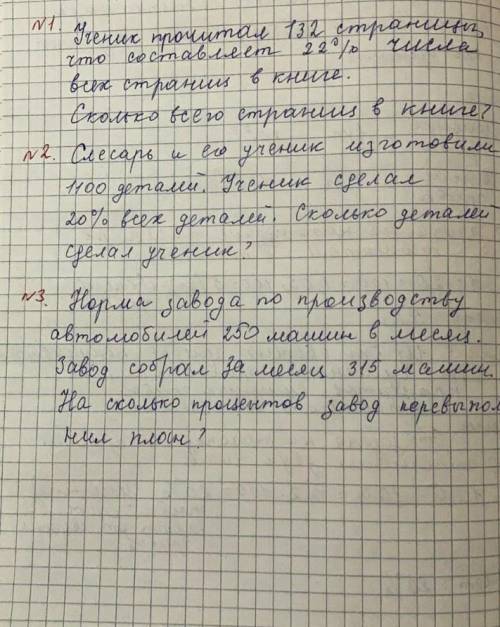 №1. Ученик прочитал 132 страницы,
что составляет 22% числа
всех страниц в книге.
Сколько всего страниц в книге?
№2. Слесарь и его ученик изготовили
1100 деталей. Ученик сделал
20% всех деталей. Сколько деталей
сделал ученик?
№3. Норма завода по производству
автомобилей 250 машин в месяц.
Завод собрал за месяц 315 машин.
На сколько процентов завод перевыпол
нил план?